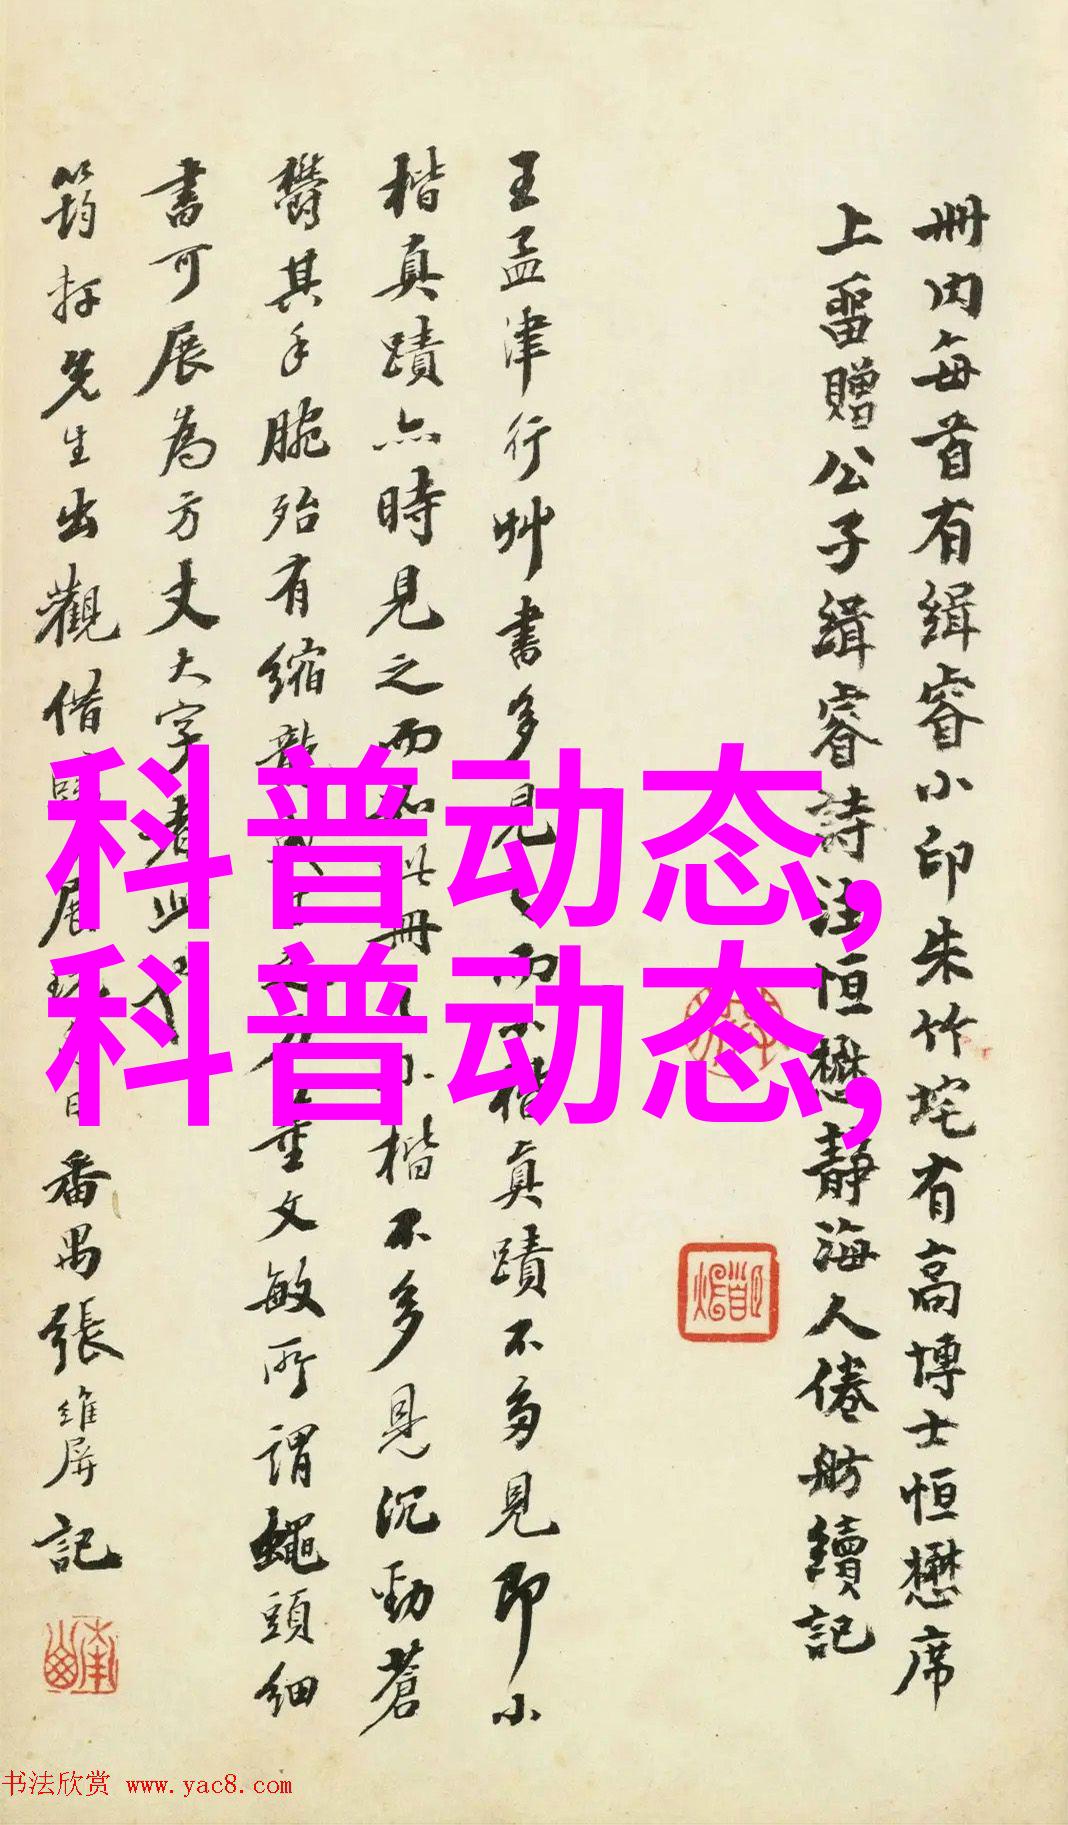 冊内每首有緝睿小印朱竹垞有高博士恒懋席
上畱贈公子緝睿詩注恒懋靜海人倦舫續記
王孟津行艸書多見之而小楷真蹟不多見即小
楷真蹟亦時見之而如此冊之小楷不多見沉勁蒼
鬱其手腕殆有縮龍之力重文敏所謂蠅頭細
書可展為方丈大字者此也
筠孫先生出觀借臨展日番禺張維屏記
科普动态,
科普动态,
书法欣赏 www.yac8.com